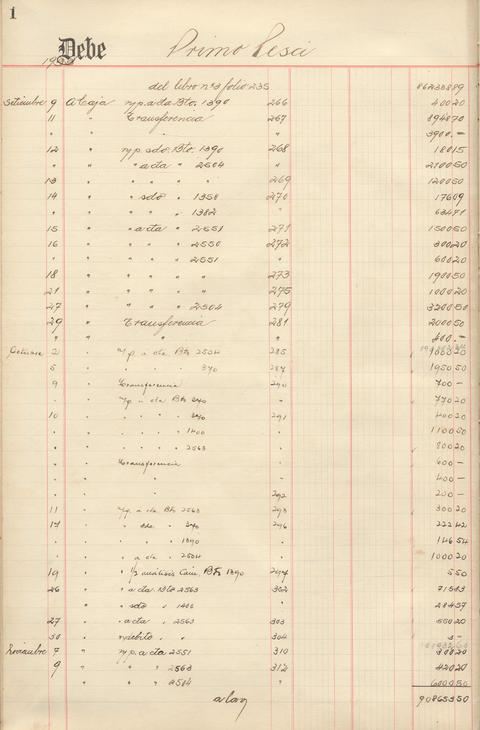 1
Debe Primo Pesci
del libro nº3 folio 235 86238889
Setiembre 9 A Caja n/p. a cta Bto. 1390 266 40020
11 " Transferencia 267 394870
" " " 3900.-
12 " n/p. sdo. Bto. 1390 268 18015
" " " a cta " 2504 " 210050
13 " " " " " 269 120050
14 " " sdo " 1350 270 17609
" " " " " 1382 " 63471
15 " " a cta " 2551 271 150050
16 " " " " 2550 272 30020
" " " " " 2551 " 60020
18 " " " " " 273 190050
21 " " " " " 275 100020
27 " " " " 2504 279 320050
29 " Transferencia 281 200050
" " " " 400.-
Octubre 2 " n/p. a cta Bto 2504 285 100020
5 " " " " " 370 287 195050
9 " Transferencia 290 700-
" " n/p. a cta Bto 340 " 77020
10 " " " " " 340 291 40020
" " " " " " 1400 " 110050
" " " " " " 2563 80020
" " Transferencia 600-
" " " 400-
" " " 292 200-
11 " n/p a cta Bto 2563 293 30020
17 " " sdo " 340 296 22242
" " " " " 1390 " 14654
" " " a cta " 2504 " 100020
19 " " análisis Bto 1390 550
26 " " a cta. Bto 2563 302 71583
" " " sdo " 1400 " 28457
27 " " a cta " 2563 303 50020
30 " n/debito " " 304 3-
Noviembre 7 " n/p. a cta 2551 310 30020
9 " " " 2563 312 42020
" " " 2504 " 600050
90865350